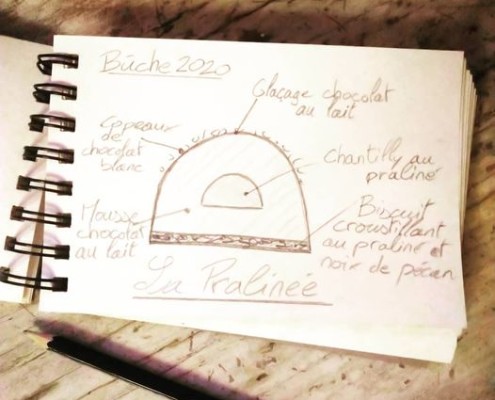 Bûche 2020
Glaçage chocolat
au lait
copeaux
de
chocolat
blanc
Chantilly au
praliné
Mousse
chocolat
au lait
Biscuit
croustillant
au praliné et
noix de pécan
La Pralinée